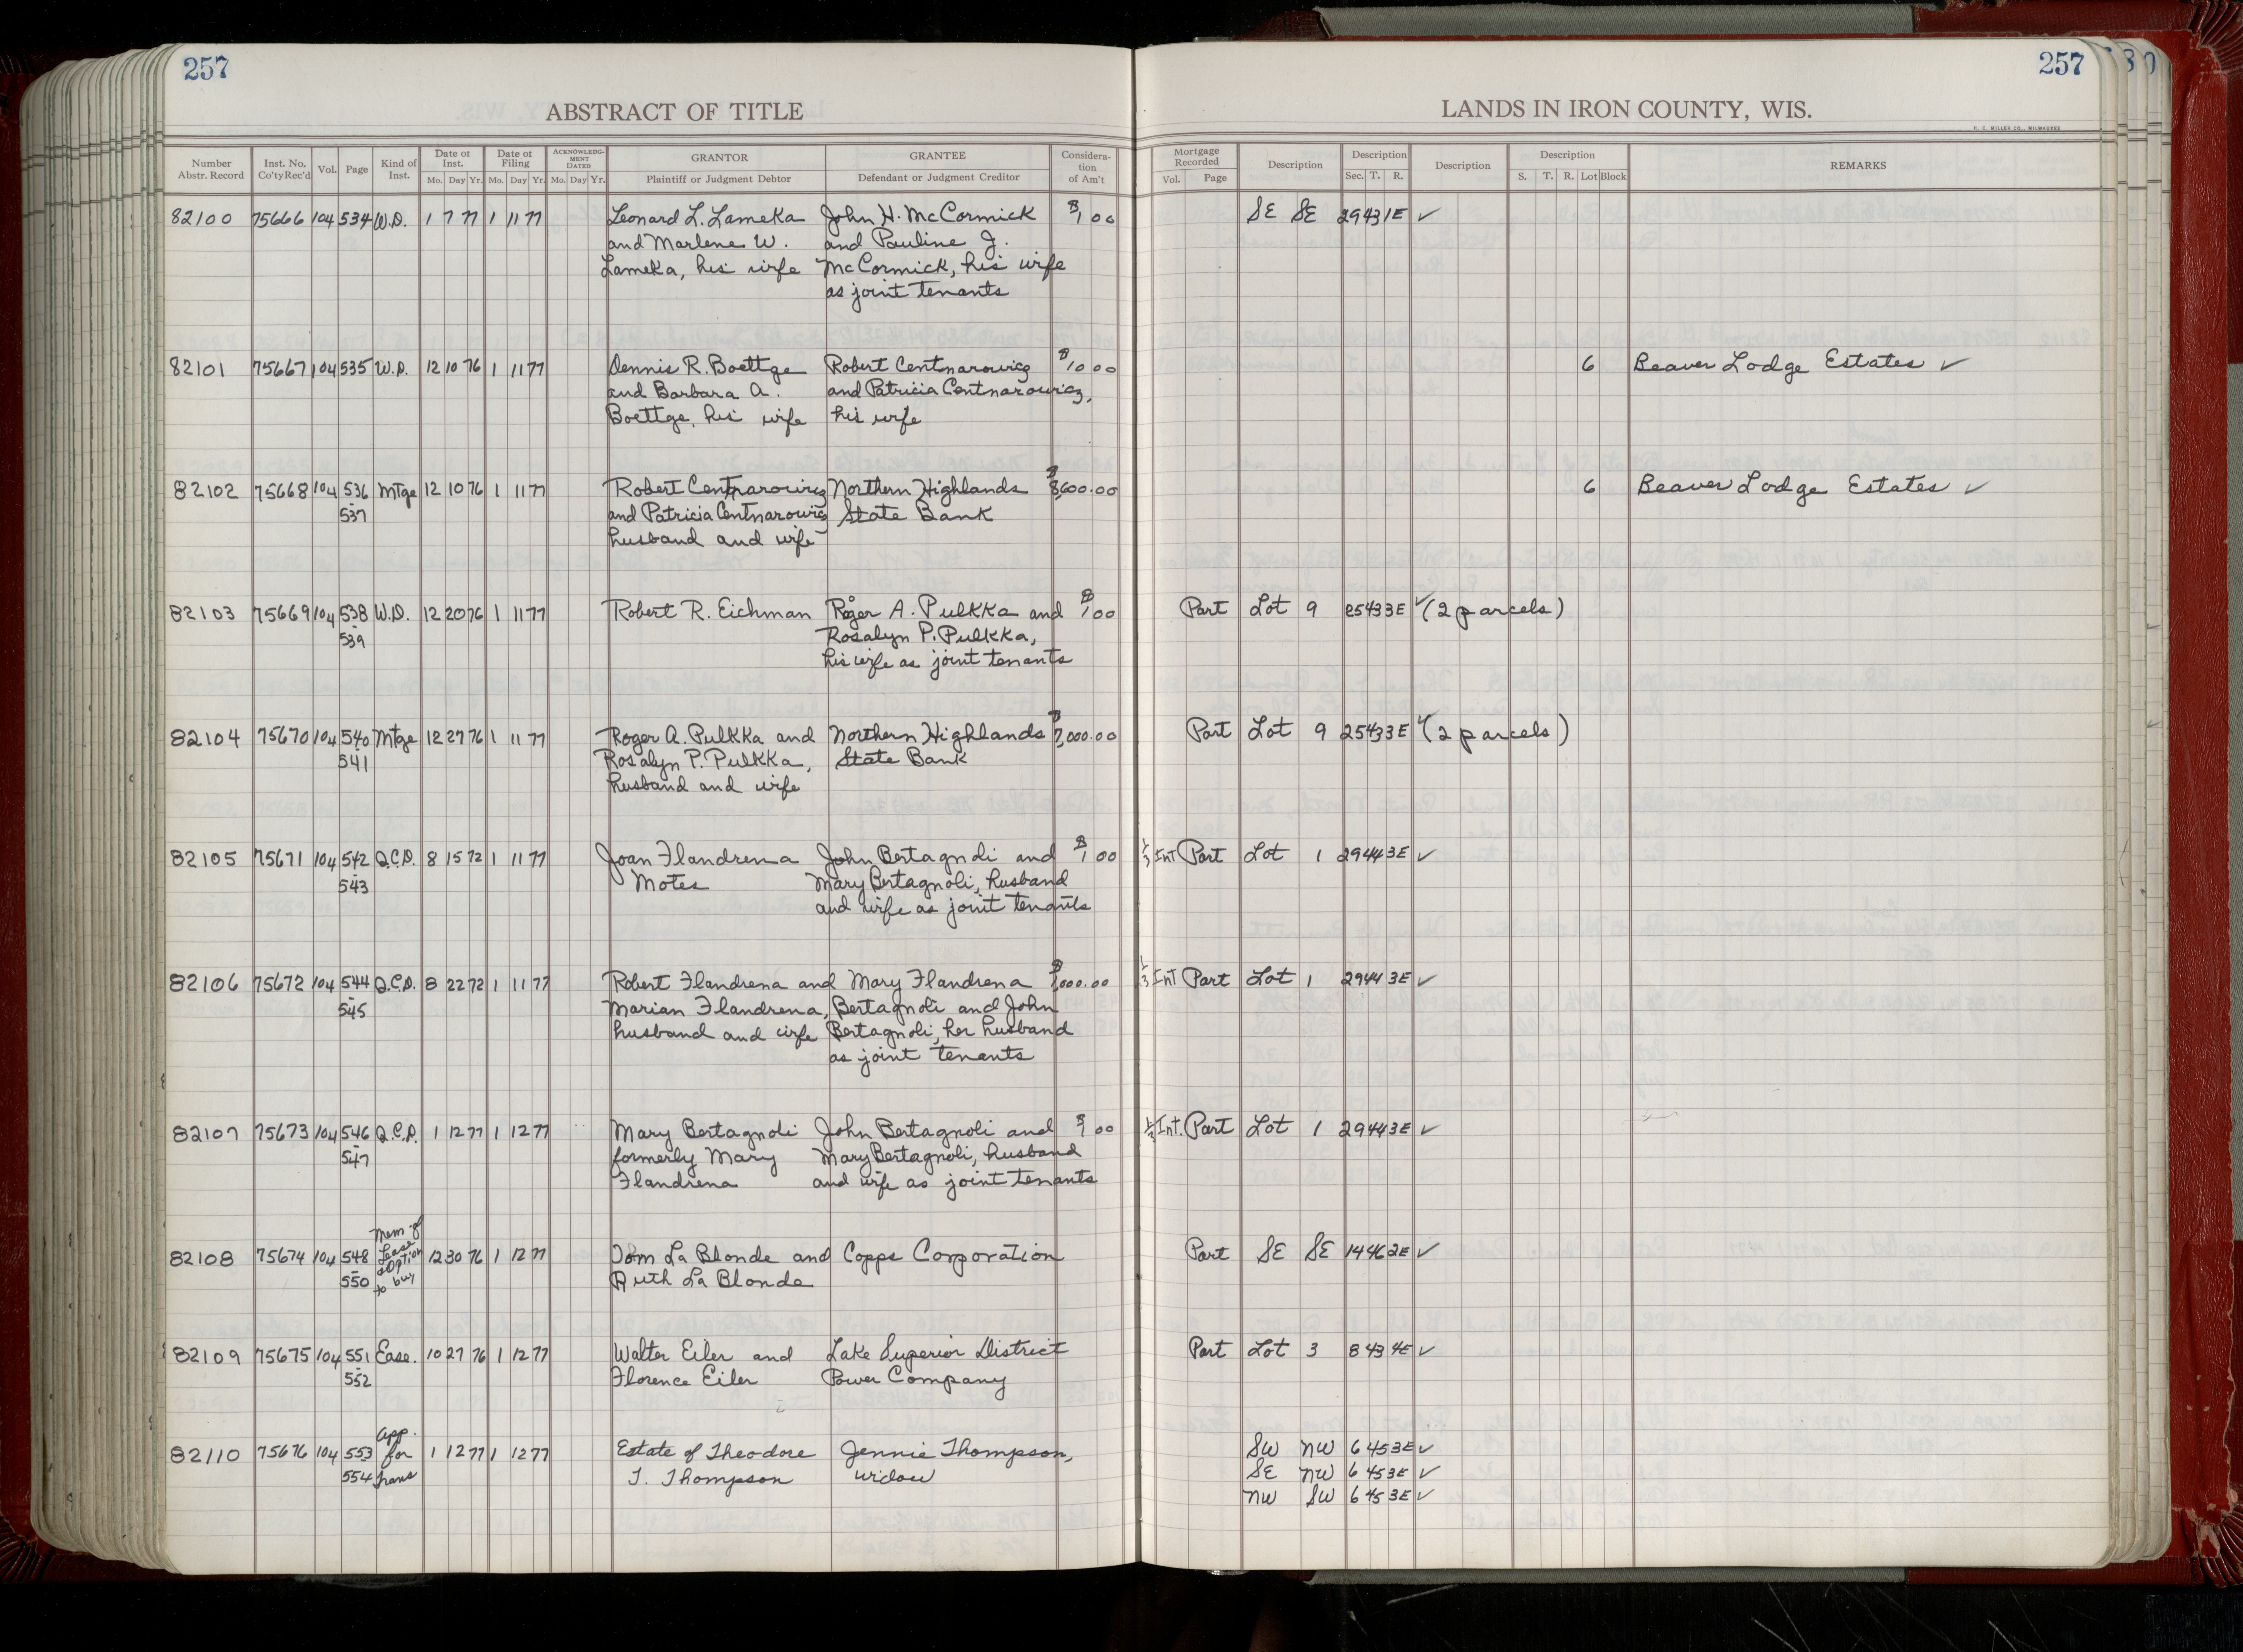 257
257
30
ABSTRACT OF TITLE
LANDS IN IRON COUNTY, WIS.
H. C. MILLER CO., MILWAUKEE
Number Abstr. Record Inst. No. Co'ty Rec'd Vol. Page Kind of Inst. Date of Inst. Mo. Day Yr. Date of Filing Mo. Day Yr. ACKNOWLEDGMENT DATED Mo. Day Yr. GRANTOR Plaintiff or Judgment Debtor GRANTEE Defendant or Judgment Creditor Consideration of Am't Mortgage Recorded Vol. Page Description Description Sec. T. R. Description Description S. T. R. Lot Block REMARKS
82100 75666 104 534 W.D. 1 7 77 1 11 77 Leonard L. Lameka John H. McCormick $1 00 SE SE 29 43 1E ✓
and Marlene W. and Pauline J.
Lameka, his wife McCormick, his wife
as joint tenants
82101 75667 104 535 W.D. 12 10 76 1 11 77 Dennis R. Boettge Robert Centnarowicz $10 00 6 Beaver Lodge Estates ✓
and Barbara A. and Patricia Centnarowicz,
Boettge, his wife his wife
82102 75668 104 536 Mtge 12 10 76 1 11 77 Robert Centnarowicz Northern Highlands $8,600.00 6 Beaver Lodge Estates ✓
- 537 and Patricia Centnarowicz State Bank
husband and wife
82103 75669 104 538 W.D. 12 20 76 1 11 77 Robert R. Eichman Roger A. Pulkka and $1 00 Part Lot 9 25 43 3E ✓ (2 parcels)
- 539 Rosalyn P. Pulkka,
his wife as joint tenants
82104 75670 104 540 Mtge 12 27 76 1 11 77 Roger A. Pulkka and Northern Highlands $7,000.00 Part Lot 9 25 43 3E ✓ (2 parcels)
541 Rosalyn P. Pulkka, State Bank
husband and wife
82105 75671 104 542 Q.C.D. 8 15 72 1 11 77 Joan Flandrena John Bertagnoli and $1 00 1/3 Int Part Lot 1 29 44 3E ✓
- 543 Motes Mary Bertagnoli, husband
and wife as joint tenants
82106 75672 104 544 Q.C.D. 8 22 72 1 11 77 Robert Flandrena and Mary Flandrena $1,000.00 1/3 Int Part Lot 1 29 44 3E ✓
- 545 Marian Flandrena, Bertagnoli and John
husband and wife Bertagnoli, her husband
as joint tenants
82107 75673 104 546 Q.C.D. 1 12 77 1 12 77 Mary Bertagnoli John Bertagnoli and $1 00 Int. Part Lot 1 29 44 3E ✓
- 547 formerly Mary Mary Bertagnoli, husband
Flandrena and wife as joint tenants
82108 75674 104 548 Mem of Lease & Option to buy 12 30 76 1 12 77 Tom La Blonde and Copps Corporation Part SE SE 14 46 2E ✓
- 550 Ruth La Blonde
82109 75675 104 551 Ease. 10 27 76 1 12 77 Walter Eiler and Lake Superior District Part Lot 3 8 43 4E ✓
- 552 Florence Eiler Power Company
82110 75676 104 553 App. for Trans 1 12 77 1 12 77 Estate of Theodore Jennie Thompson, SW NW 6 45 3E ✓
554 T. Thompson widow SE NW 6 45 3E ✓
NW SW 6 45 3E ✓